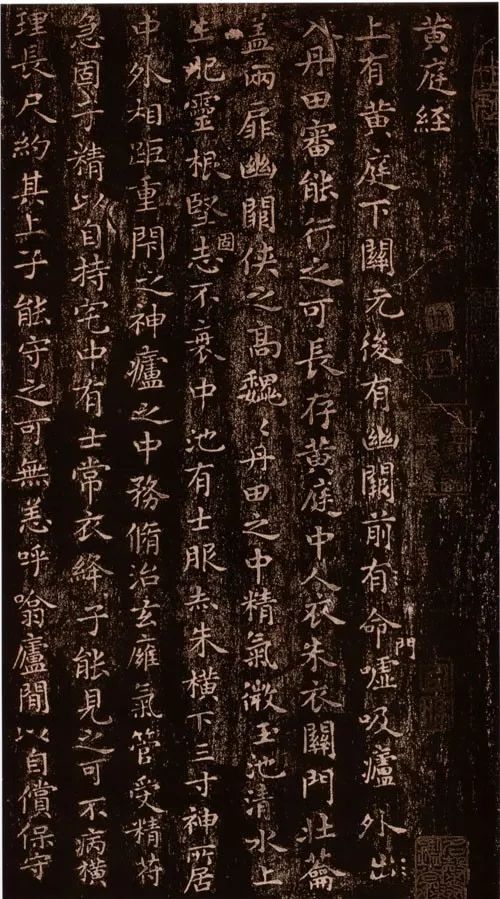 黄庭經
上有黄庭下關元後有幽闕前有命門噓吸廬外出
入丹田審能行之可長存黄庭中人衣朱衣關門壮籥
蓋兩扉幽闕俠之高魏〻丹田之中精氣微玉池清水上
生肥靈根堅固志不衰中池有士服赤朱横下三寸神所居
中外相距重閇之神廬之中務脩治玄癰氣管受精符
急固子精以自持宅中有士常衣絳子能見之可不病横
理長尺約其上子能守之可無恙呼噏廬間以自償保守